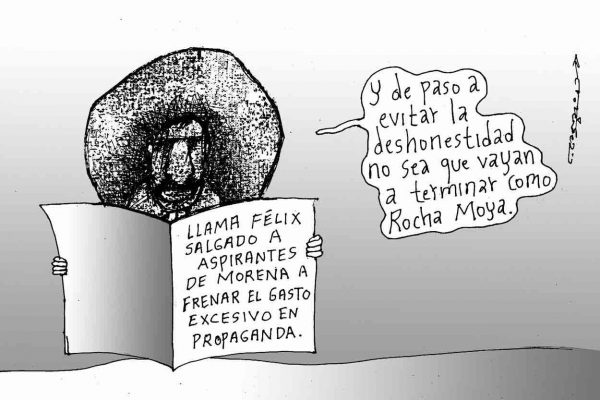 LLAMA FÉLIX
SALGADO A
ASPIRANTES
DE MORENA A
FRENAR EL GASTO
EXCESIVO EN
PROPAGANDA.
Y de paso a
evitar la
deshonestidad
no sea que vayan
a terminar como
Rocha Moya.